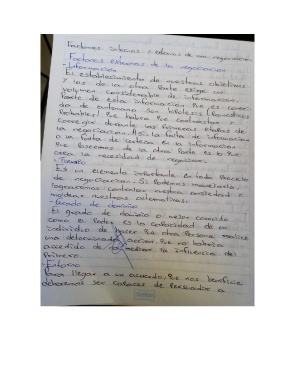 Factores internos y externos de una negociación
Factores externos de la negociación
- Información
El establecimiento de nuestros objetivos
y los de la otra parte exige un
volumen considerable de información.
Parte de esta información que es
de antemano son hipótesis (pronósticos
probables) que habrá que contrastar y
corregir durante las primeras etapas de
la negociación. Así la falta de información
o la falta de certeza en la información
que poseemos de la otra parte es lo que
crea la necesidad de negociar.
- Tiempo
Es un elemento importante en todo proceso
de negociación. Si podemos manejarlo,
lograremos controlar nuestra ansiedad y
nuestras alternativas.
- Grado de dominio
El grado de dominio o mejor conocido
como el Poder, es la capacidad de un
individuo de hacer que otra persona realice
una determinada acción que no habría
accedido de la influencia del
primero.
- Entorno
Para llegar a un acuerdo, que nos beneficie
deberemos ser capaces de persuadir a